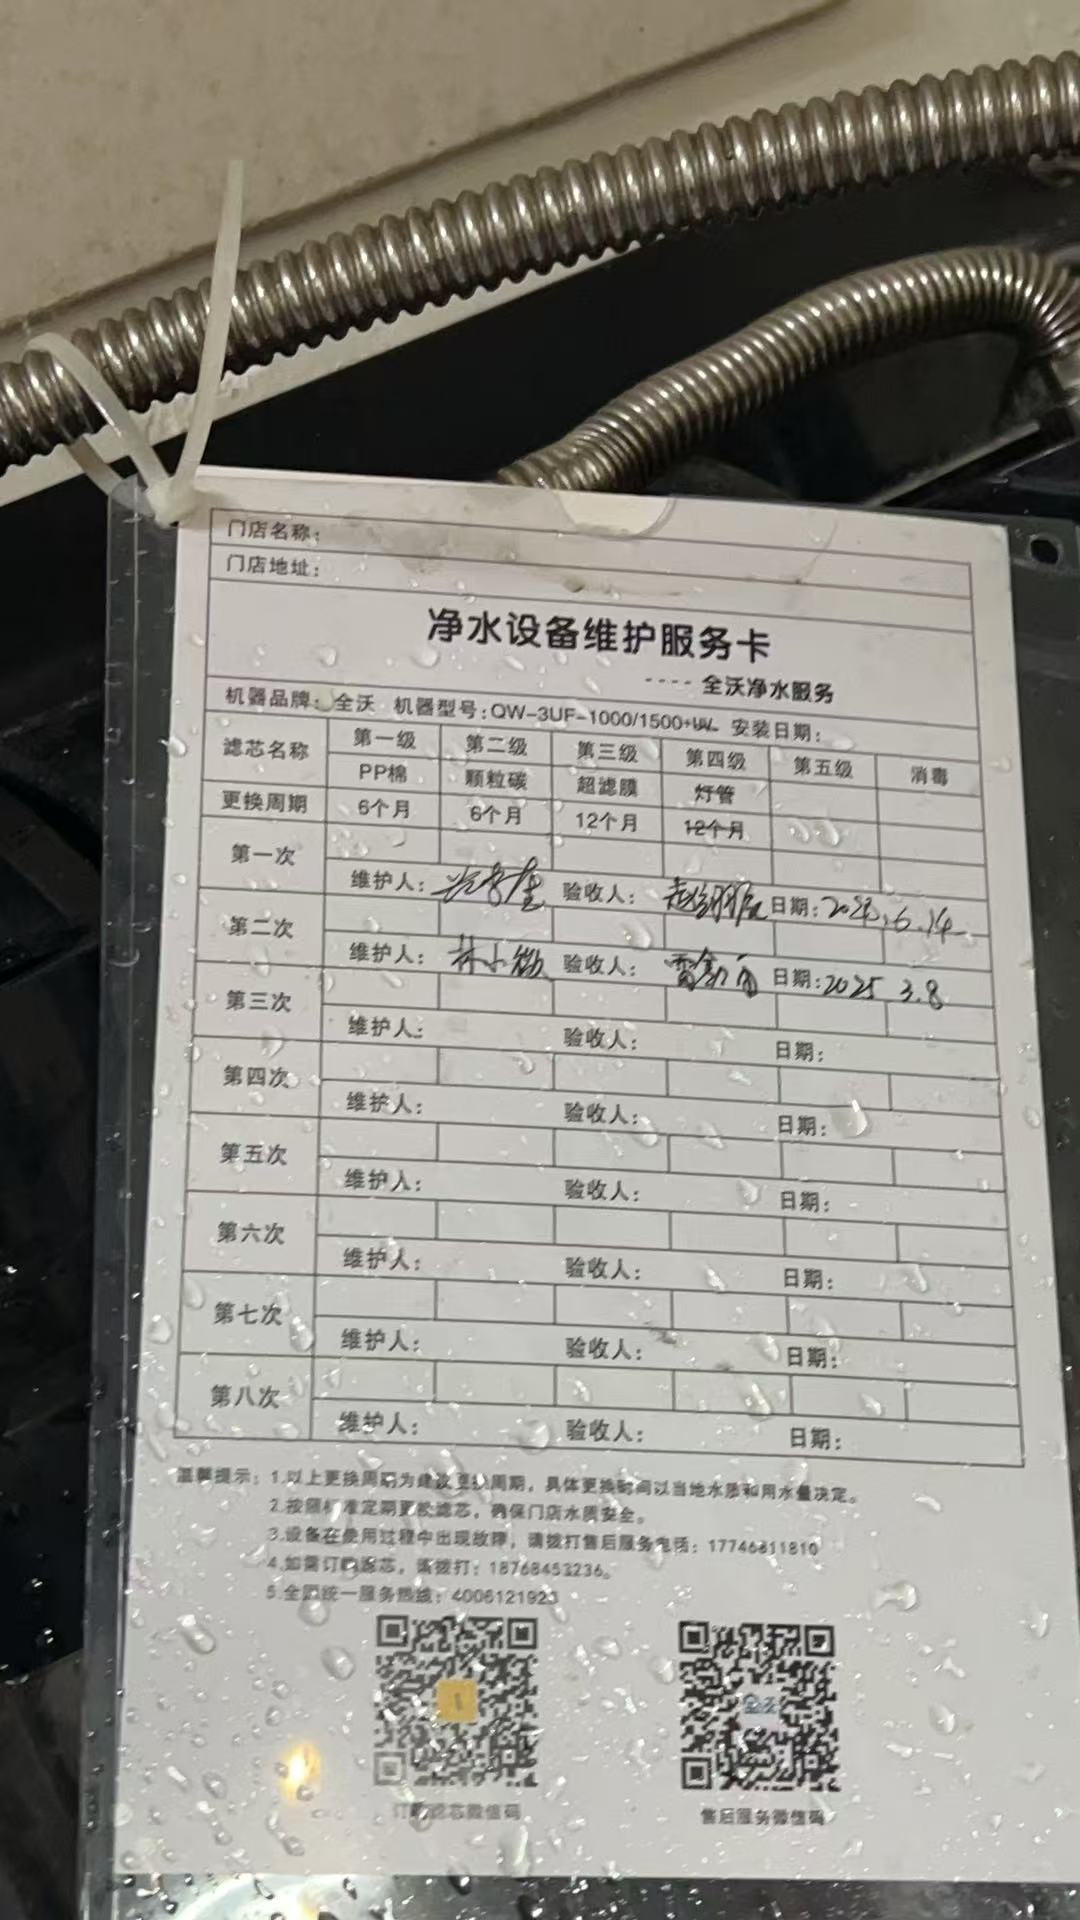 门店名称：
门店地址：
净水设备维护服务卡
---- 全沃净水服务
机器品牌：全沃 机器型号：QW-3UF-1000/1500+UV 安装日期：
滤芯名称 第一级 第二级 第三级 第四级 第五级 消毒
PP棉 颗粒碳 超滤膜 灯管
更换周期 6个月 6个月 12个月 12个月
第一次
维护人： 验收人： 日期：6.14
第二次
维护人：林小 验收人：雷 日期：2025 3.8
第三次
维护人： 验收人： 日期：
第四次
维护人： 验收人： 日期：
第五次
维护人： 验收人： 日期：
第六次
维护人： 验收人： 日期：
第七次
维护人： 验收人： 日期：
第八次
维护人： 验收人： 日期：
温馨提示：1.以上更换周期为建议更换周期，具体更换时间以当地水质和用水量决定。
2.按照标准定期更换滤芯，确保门店水质安全。
3.设备在使用过程中出现故障，请拨打售后服务电话：17746811810
4.如需订购滤芯，请拨打：18768453236。
5.全国统一服务热线：4006121923
订购滤芯微信码
售后服务微信码